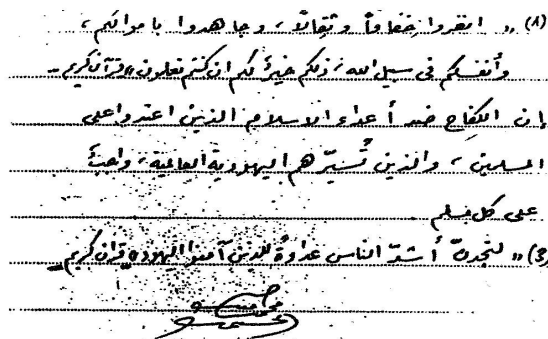 (٨) " انفروا خفافاً وثقالاً، وجاهدوا باموالكم،
وأنفسكم في سبيل الله، ذلكم خيرٌ لكم ان كنتم تعلمون" قرآن كريم -
إن الكفاح ضد أعداء الاسلام الذين اعتدوا على
المسلمين، والذين تُسَيِّرهم اليهودية العالمية، واجبٌ
على كل مسلم
(3) " لتجدنّ أشدّ الناس عداوةً للذين آمنوا اليهود" قرآن كريم -